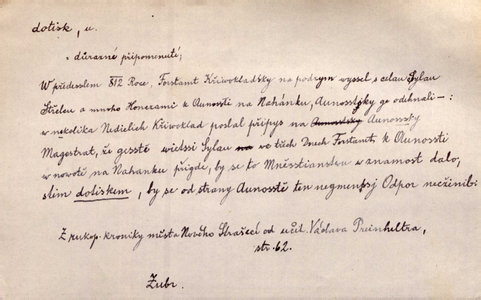 dotisk, u.
= důrazné připomenutí;
W předesslem 812 Roce, Forstamt Křiwokladsky na podzym wyssel s celau Sylau
Střelcu a mnoho Honczami k Aunossti na Nahánku, Aunosstsky ge odehnali –:
w nekolika Nedielich Křiwoklad poslal připys na Aunossky
Magestrat, že gesstě wietssi Sylau we třích Dnech Forstamt k Aunossti
w nowotě na Nahanku přigde, by se to Mněsstianstwu w znamost dalo,
s tím dotiskem, by se od strany Aunosstě ten negmenssj Odpor nečzinil:
Z rukop. kroniky města Nového Strašecí od učit. Václava Preinheltra,
str. 62.
Zubr.